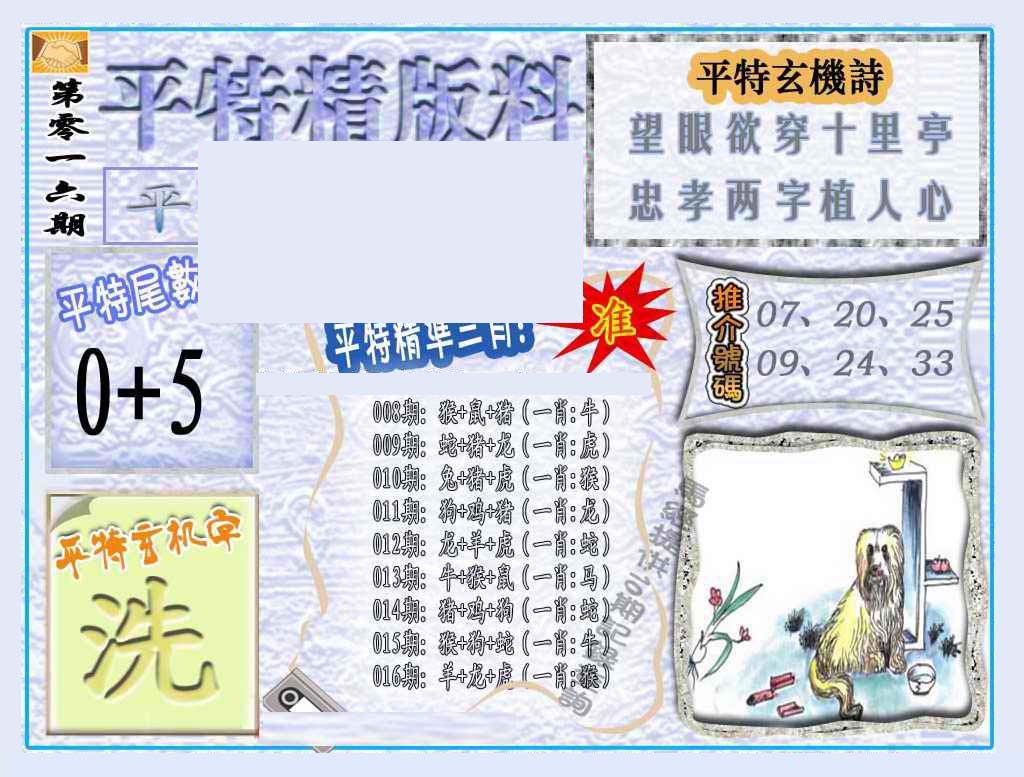 第零一六期
平特精版料
平
平特玄機詩
望眼欲穿十里亭
忠孝两字植人心
平特尾數
0+5
平特精準三肖!
准
推介號碼
07、20、25
09、24、33
008期: 猴+鼠+猪(一肖:牛)
009期: 蛇+猪+龙(一肖:虎)
010期: 兔+猪+虎(一肖:猴)
011期: 狗+鸡+猪(一肖:龙)
012期: 龙+羊+虎(一肖:蛇)
013期: 牛+猴+鼠(一肖:马)
014期: 猪+鸡+狗(一肖:蛇)
015期: 猴+狗+蛇(一肖:牛)
016期: 羊+龙+虎(一肖:猴)
平特玄机字
洗